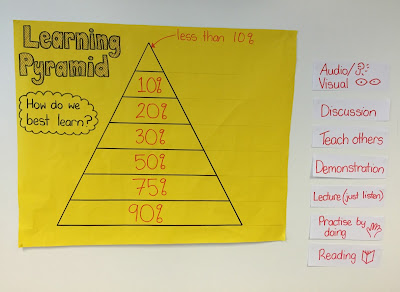 Learning
Pyramid
less than 10%
How do we
best learn?
10%
20%
30%
50%
75%
90%
Audio/
Visual
Discussion
Teach others
Demonstration
Lecture (just listen)
Practise by
doing
Reading